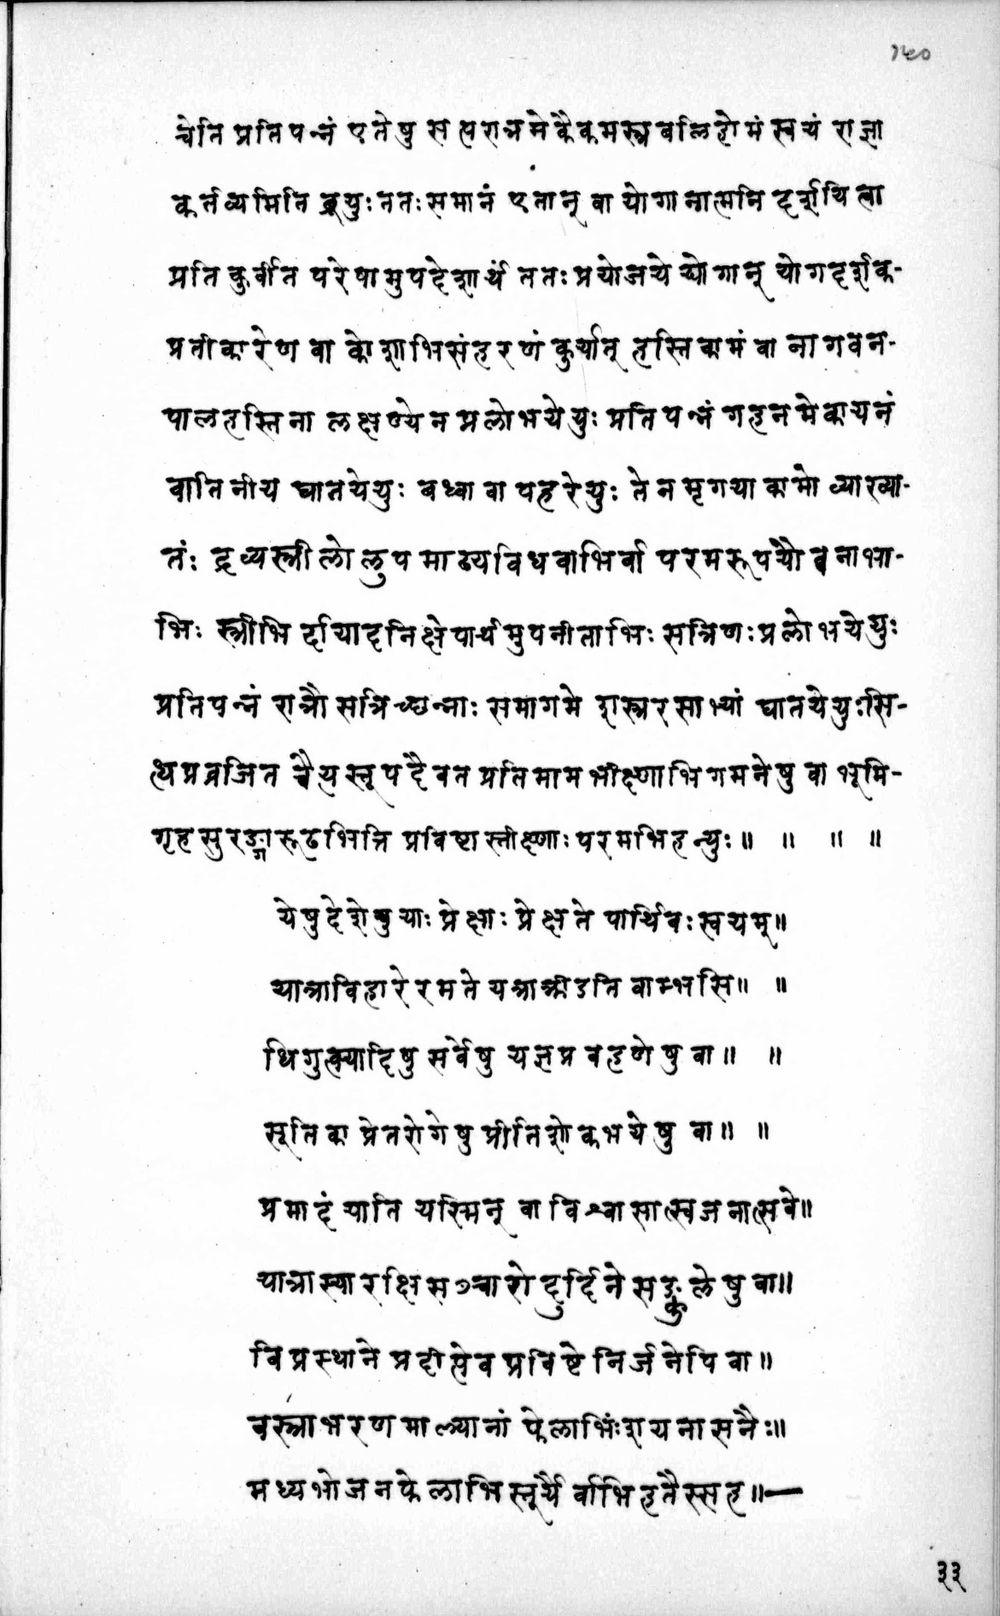 २४०
चेति प्रतिपन्नं एतेषु सप्तरात्रमेकैकमन्त्रबलिहोमं स्वयं राज्ञा
कर्तव्यमिति ब्रूयुः ततः समानं एतान् वा योगानात्मनि दर्शयित्वा
प्रतिकुर्वीत परेषामुपदेशार्थं ततः प्रयोजयेद्योगान् योगदर्शक-
प्रतीकारेण वा कोशाभिसंहरणं कुर्यात् हस्तिकामं वा नागवन-
पालहस्तिना लक्षण्येन प्रलोभयेयुः प्रतिपन्नं गहनमेकायनं
वातिनीय घातयेयुः बध्वा वापहरेयुः तेन मृगयाकामो व्याख्या-
तः द्रव्यस्त्रीलोलुपमाढ्यविधवाभिर्वा परमरूपयौवनाभा-
भिः स्त्रीभिर्दायादनिक्षेपार्थमुपनीताभिः सत्रिणः प्रलोभयेयुः
प्रतिपन्नं रात्रौ सत्रिच्छन्नाः समागमे शस्त्ररसाभ्यां घातयेयुः सि-
त्धप्रव्रजित चैत्यस्तूपदैवतप्रतिमामभीक्ष्णाभिगमनेषु वा भूमि-
गृहसुरङ्गारूढभित्तिप्रविष्टास्तीक्ष्णाः परमभिहन्युः॥ ॥ ॥ ॥
येषु देशेषु याः प्रेक्षाः प्रेक्षते पार्थिवः स्वयम्॥
यात्राविहारे रमते यत्राक्रीडति वाम्भसि॥ ॥
धिगुत्क्यादिषु सर्वेषु यज्ञप्रवहणेषु वा॥ ॥
सूतिकाप्रेतरोगेषु प्रीतिशोकभयेषु वा॥ ॥
प्रमादं याति यस्मिन् वा विश्वासात्स्वजनोत्सवे॥
यात्रास्यारक्षिसञ्चारो दुर्दिने सङ्कुलेषु वा॥
विप्रस्थाने प्रदीप्ते व प्रविष्टे निर्जनेपि वा॥
वस्त्राभरणमाल्यानां फेलाभिः शयनासनैः॥
मध्यभोजनफेलाभिस्तूर्यैर्वाभिहतैस्सह॥—
३३